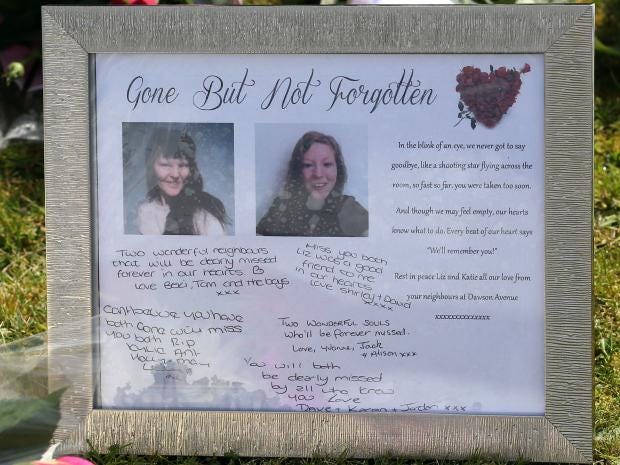 Gone But Not Forgotten
In the blink of an eye, we never got to say
goodbye, like a shooting star flying across the
room, so fast so far. you were taken too soon.
And though we may feel empty, our hearts
know what to do. Every beat of our heart says
"We'll remember you!"
Rest in peace Liz and Katie all our love from
your neighbours at Dawson Avenue
xxxxxxxxxxxxxx
Two wonderful neighbours
that will be dearly missed
forever in our hearts
Love Beki, Tom and the boys
xxx
Miss you both
Liz was a good
friend to me
in our hearts
love Shirley + David
xxxx
you have
both gone will miss
you both RIP
Two wonderful souls
who'll be forever missed.
Love, Yvonne, Jack
& Alison xxx
You will both
be dearly missed
by all who knew
you Love
Dave + Karen + Jordon xxx